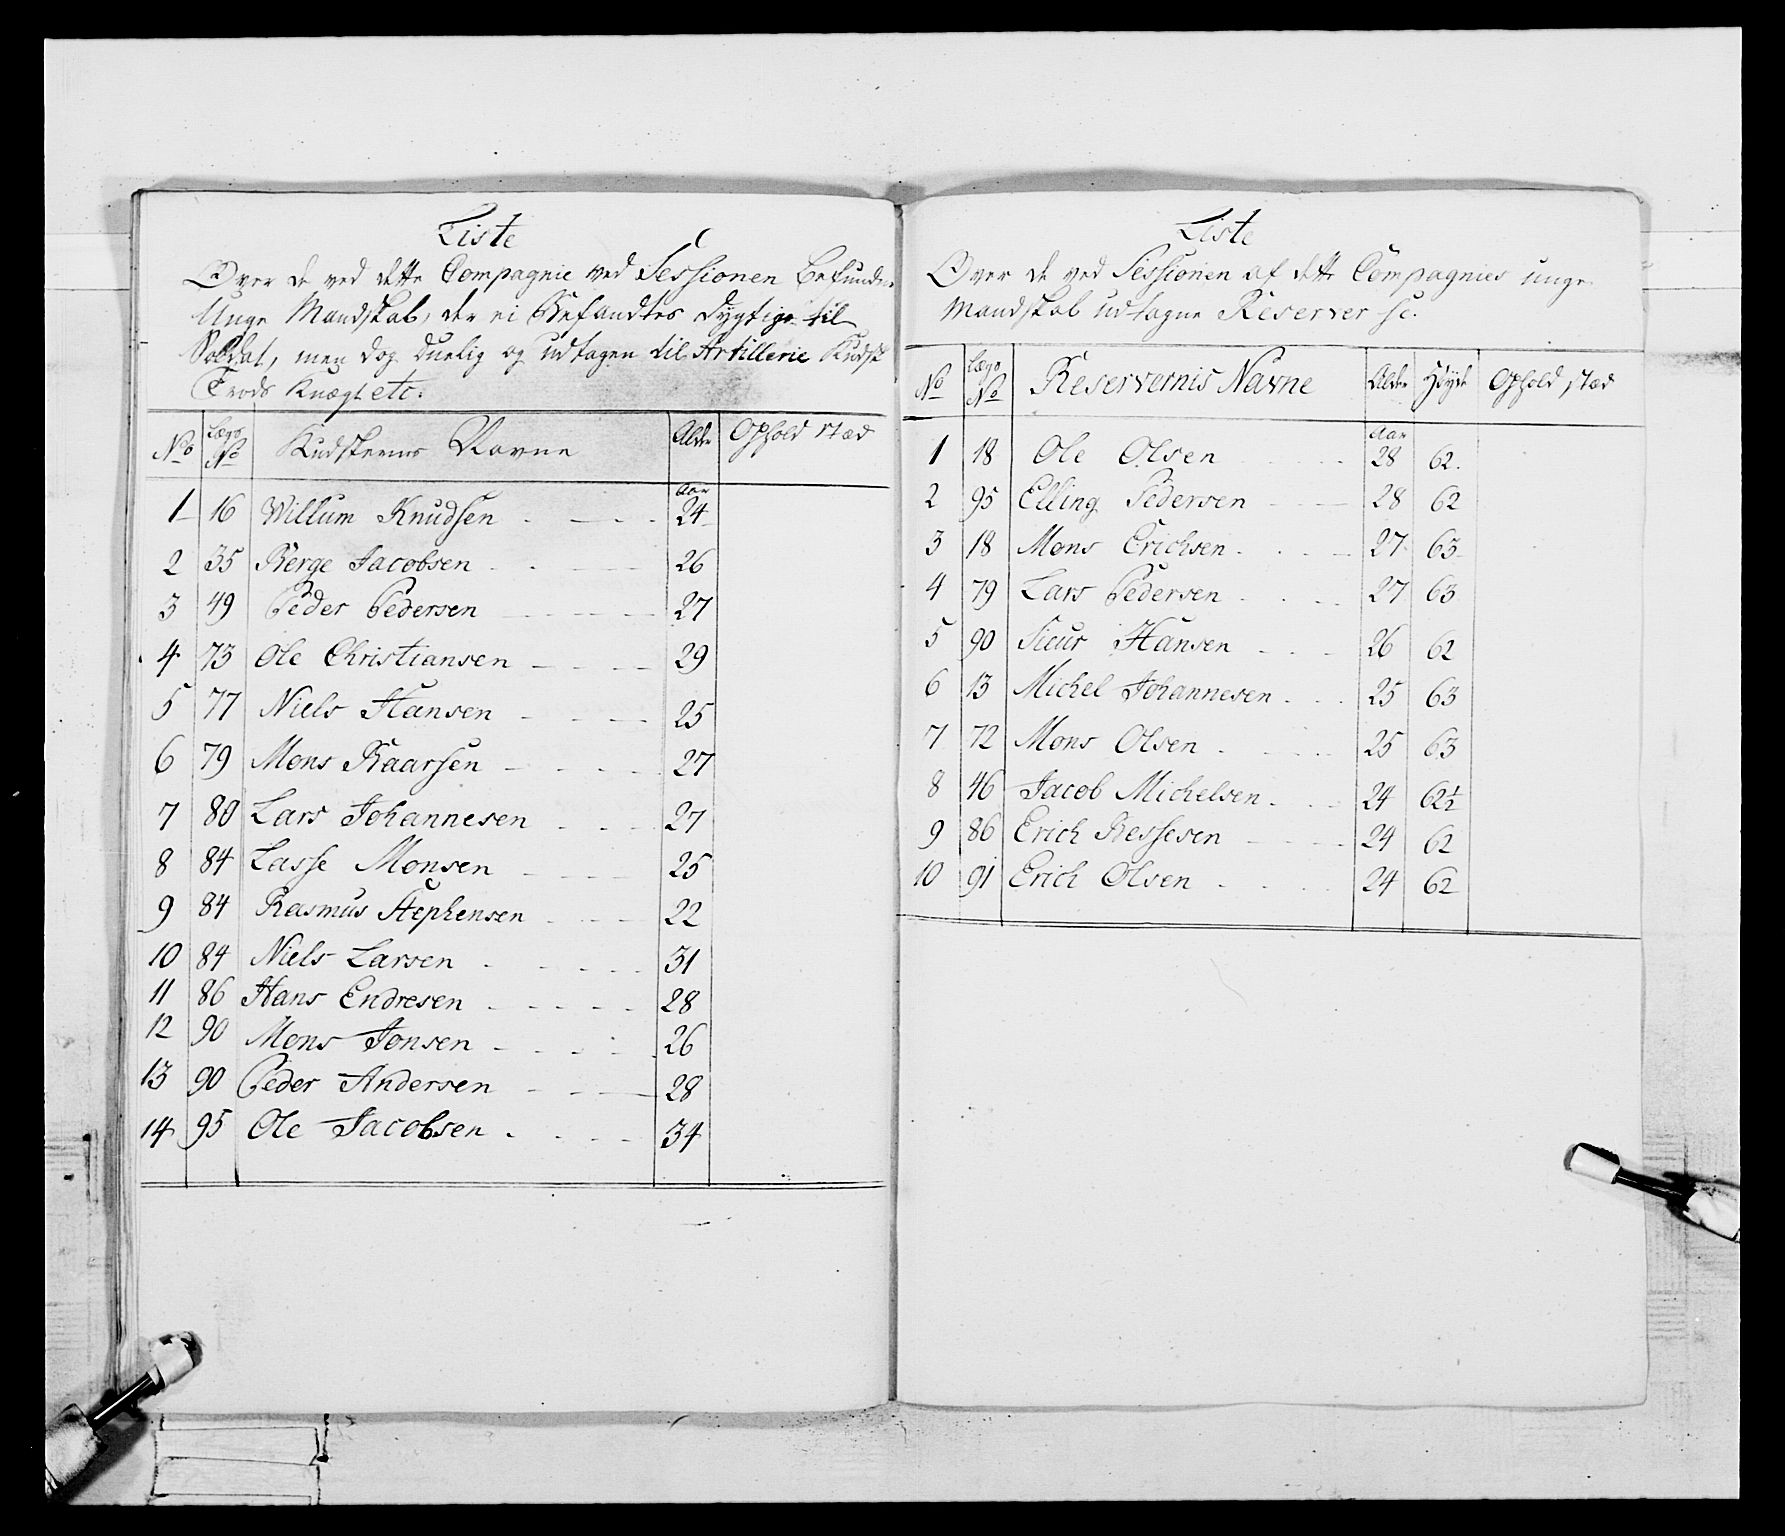 Liste
Over de ved dette Compagnie ved Sessionen befundne
Unge Mandskab, der ei Befandtes dygtige til
Soldat, men dog duelig og udtagen til Artillerie Kudsk
Trods Knægt etc.
No Lægs No Kudskernes Navne Alder Ophold stæd
Aar
1 16 Willum Knudsen 24
2 35 Berge Jacobsen 26
3 49 Peder Pedersen 27
4 73 Ole Christiansen 29
5 77 Niels Hansen 25
6 79 Mons Baarsen 27
7 80 Lars Johannesen 27
8 84 Lasse Monsen 25
9 84 Rasmus Stephensen 22
10 84 Niels Larsen 31
11 86 Hans Endresen 28
12 90 Mons Jonsen 26
13 90 Peder Andersen 28
14 95 Ole Jacobsen 34
Liste
Over de ved Sessionen af dette Compagnies unge
Mandskab udtagne Reserver sc.
No Lægs No Reservernis Navne Alder Høyde Ophold stæd
Aar
1 18 Ole Olsen 28 62.
2 95 Elling Pedersen 28 62
3 18 Mons Erichsen 27 63
4 79 Lars Pedersen 27 63
5 90 Siur Hansen 26 62
6 13 Michel Johannesen 25 63
7 72 Mons Olsen 25 63
8 46 Jacob Michelsen 24 62½
9 86 Erich Bessesen 24 62
10 91 Erich Olsen 24 62